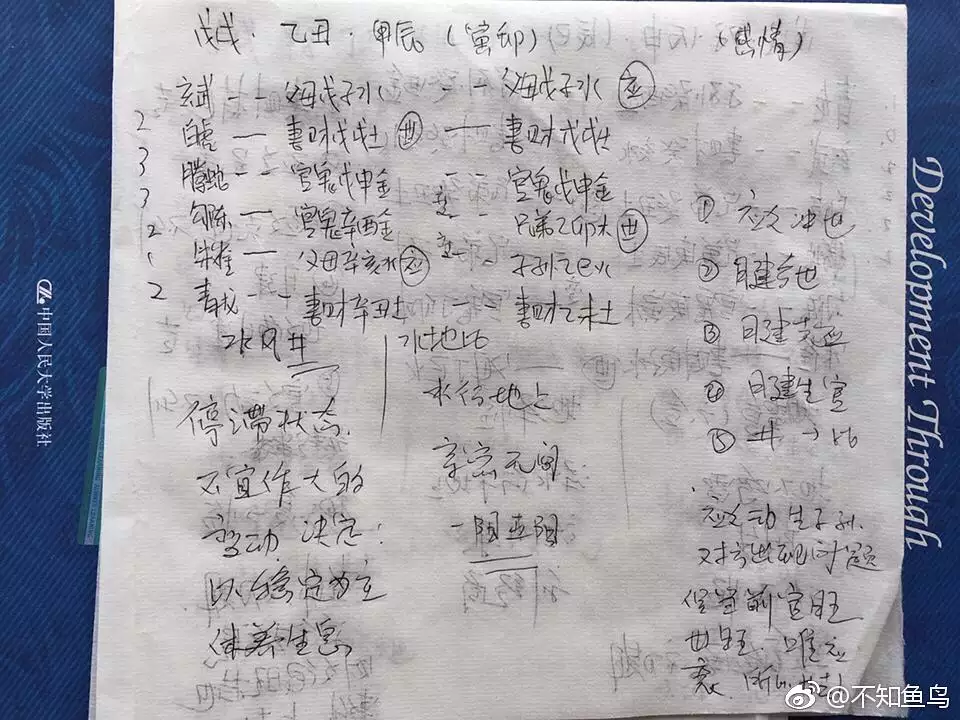 戊戌·乙丑·甲辰(寅卯) (感情)
玄武 -- 父母戊子水 -- 父母戊子水 应
2 白虎 — 妻财戊戌土 世 — 妻财戊戌土
3 腾蛇 -- 官鬼戊申金 -- 官鬼戊申金
3 勾陈 — 官鬼辛酉金 -- 兄弟乙卯木 世
2 朱雀 — 父母辛亥水 应 -- 子孙乙巳火
2 青龙 -- 妻财辛丑土 -- 妻财乙未土
水风井
水地比
停滞状态.
不宜作大的
变动 决定:
以稳定为主
休养生息
水行地上
亲密无间
① 应爻冲世
② 日建合世
③ 日建克应
④ 日建生官
⑤ 井→比
应爻动生子孙.
对方出现问题
官旺
世旺. 唯应
衰.
中国人民大学出版社
Development Through
@不知鱼鸟